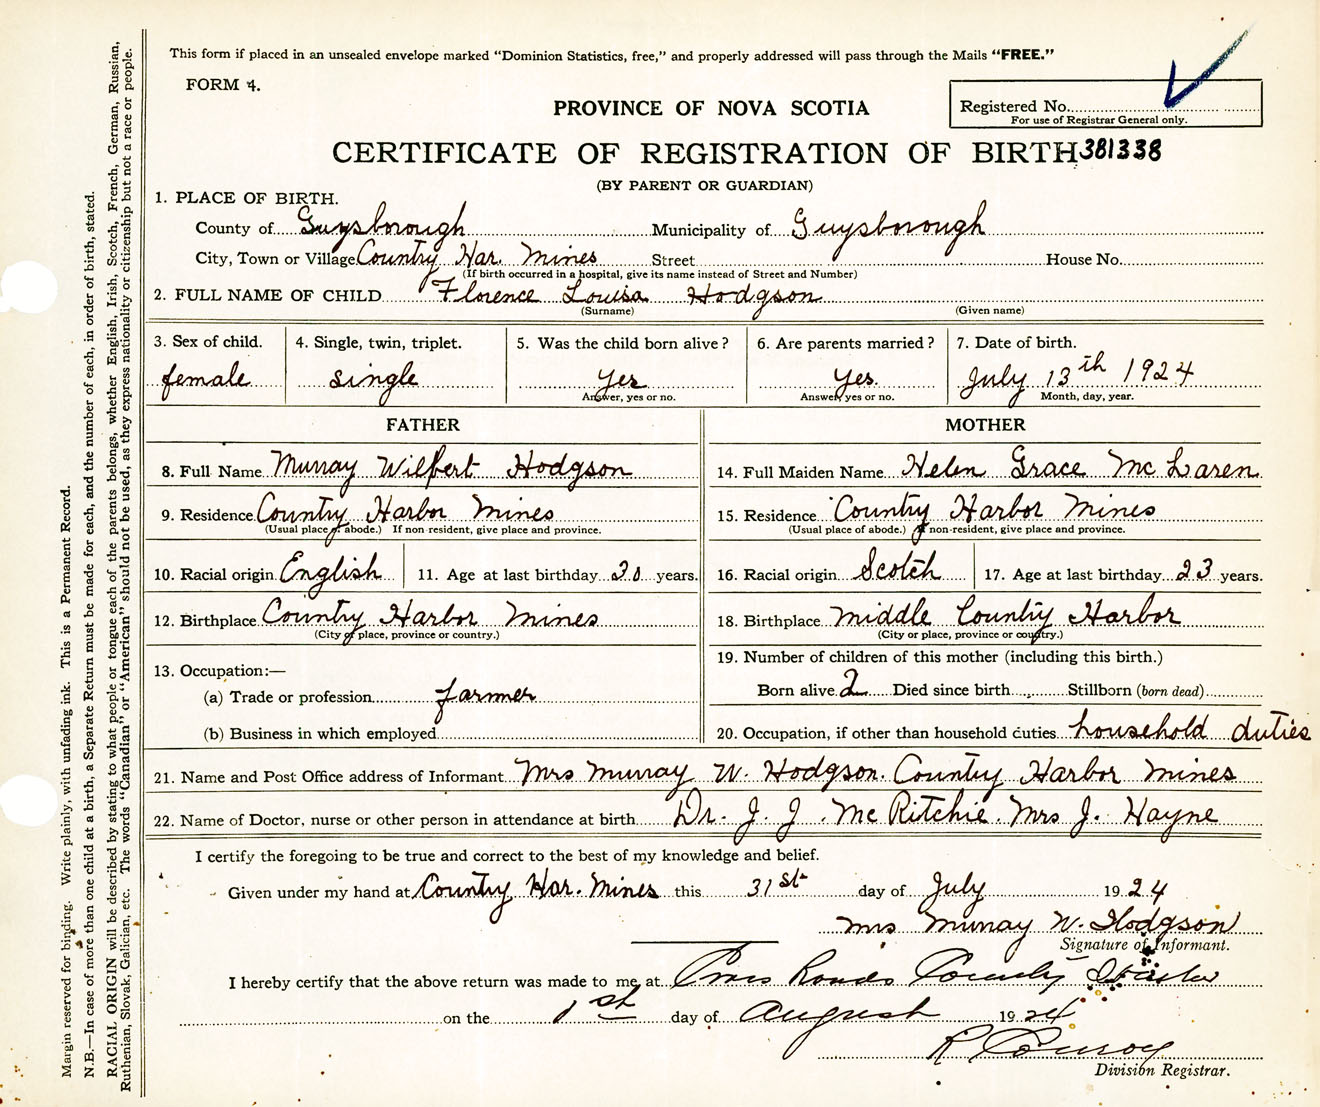 This form if placed in an unsealed envelope marked "Dominion Statistics, free," and properly addressed will pass through the Mails "FREE."
FORM 4.
PROVINCE OF NOVA SCOTIA
Registered No.
For use of Registrar General only.
CERTIFICATE OF REGISTRATION OF BIRTH 381338
(BY PARENT OR GUARDIAN)
1. PLACE OF BIRTH.
County of Guysborough Municipality of Guysborough
City, Town or Village Country Har. Mines Street House No.
(If birth occurred in a hospital, give its name instead of Street and Number)
2. FULL NAME OF CHILD Florence Louisa Hodgson
(Surname) (Given name)
3. Sex of child. 4. Single, twin, triplet. 5. Was the child born alive? 6. Are parents married? 7. Date of birth.
female single yes yes. July 13th 1924
Answer, yes or no. Answer, yes or no. Month, day, year.
FATHER MOTHER
8. Full Name Murray Wilbert Hodgson 14. Full Maiden Name Helen Grace Mc Laren
9. Residence Country Harbor Mines 15. Residence Country Harbor Mines
(Usual place of abode.) If non-resident, give place and province. (Usual place of abode.) If non-resident, give place and province.
10. Racial origin English 11. Age at last birthday years. 16. Racial origin Scotch 17. Age at last birthday 23 years.
12. Birthplace Country Harbor Mines 18. Birthplace Middle Country Harbor
(City or place, province or country.) (City or place, province or country.)
13. Occupation:— 19. Number of children of this mother (including this birth.)
(a) Trade or profession farmer Born alive 2 Died since birth Stillborn (born dead)
(b) Business in which employed 20. Occupation, if other than household duties household duties
21. Name and Post Office address of Informant Mrs Murray W. Hodgson. Country Harbor Mines
22. Name of Doctor, nurse or other person in attendance at birth Dr. J. J. Mc Ritchie. Mrs J. Hayne
I certify the foregoing to be true and correct to the best of my knowledge and belief.
Given under my hand at Country Har. Mines this 31st day of July 1924
Mrs Murray W. Hodgson
Signature of Informant.
I hereby certify that the above return was made to me at Cross Roads Country Harbor
on the 1st day of August 1924
R Conroy
Division Registrar.
Margin reserved for binding. Write plainly, with unfading ink. This is a Permanent Record.
N.B.—In case of more than one child at a birth, a Separate Return must be made for each, and the number of each, in order of birth, stated.
RACIAL ORIGIN will be described by stating to what people or tongue each of the parents belongs, whether English, Irish, Scotch, French, German, Russian,
Ruthenian, Slovak, Galician, etc. The words "Canadian" or "American" should not be used, as they express nationality or citizenship but not a race or people.